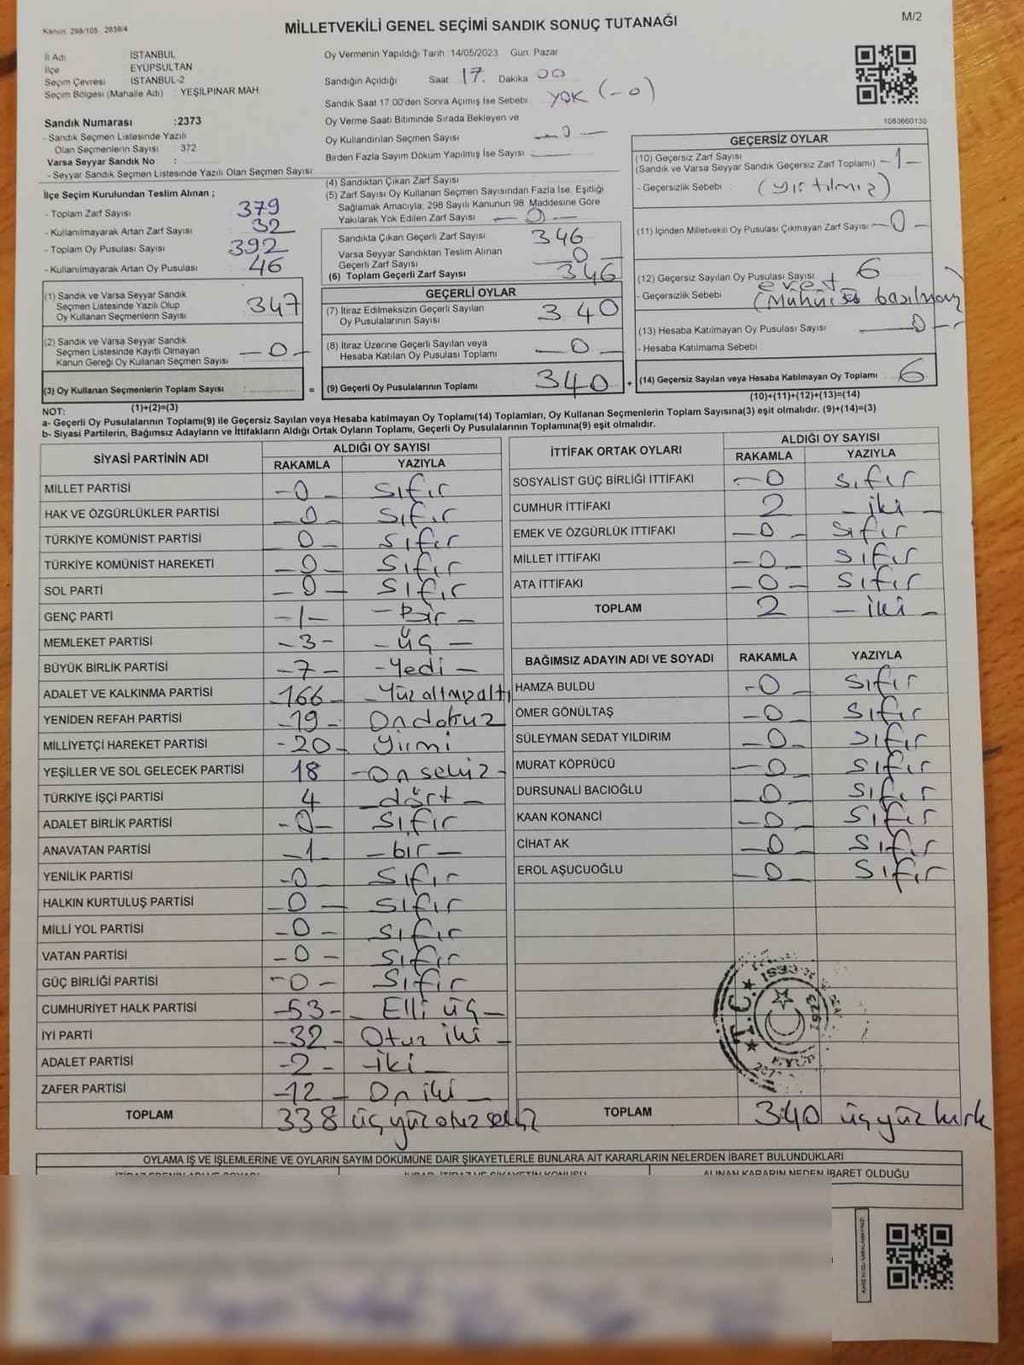 Kanun: 298/105 2839/4
MİLLETVEKİLİ GENEL SEÇİMİ SANDIK SONUÇ TUTANAĞI
M/2
İl Adı : İSTANBUL
İlçe : EYÜPSULTAN
Seçim Çevresi : İSTANBUL-2
Seçim Bölgesi (Mahalle Adı) : YEŞİLPINAR MAH
Sandık Numarası :2373
- Sandık Seçmen Listesinde Yazılı
Olan Seçmenlerin Sayısı : 372
Varsa Seyyar Sandık No :
- Seyyar Sandık Seçmen Listesinde Yazılı Olan Seçmen Sayısı:
Oy Vermenin Yapıldığı Tarih :14/05/2023 Gün: Pazar
Sandığın Açıldığı Saat 17. Dakika 00
Sandık Saat 17.00'den Sonra Açımış İse Sebebi: YOK (-0)
Oy Verme Saati Bitiminde Sırada Bekleyen ve
Oy Kullandırılan Seçmen Sayısı —0—
Birden Fazla Sayım Döküm Yapılmış İse Sayısı :
1083660130
İlçe Seçim Kurulundan Teslim Alınan ;
- Toplam Zarf Sayısı 379
- Kullanılmayarak Artan Zarf Sayısı 32
- Toplam Oy Pusulası Sayısı 392
- Kullanılmayarak Artan Oy Pusulası 46
(1) Sandık ve Varsa Seyyar Sandık
Seçmen Listesinde Yazılı Olup
Oy Kullanan Seçmenlerin Sayısı 347
(2) Sandık ve Varsa Seyyar Sandık
Seçmen Listesinde Kayıtlı Olmayan
Kanun Gereği Oy Kullanan Seçmen Sayısı —0—
(3) Oy Kullanan Seçmenlerin Toplam Sayısı :
(1)+(2)=(3)
(4) Sandıktan Çıkan Zarf Sayısı
(5) Zarf Sayısı Oy Kullanan Seçmen Sayısından Fazla İse, Eşitliği
Sağlamak Amacıyla; 298 Sayılı Kanunun 98. Maddesine Göre
Yakılarak Yok Edilen Zarf Sayısı —0—
Sandıkta Çıkan Geçerli Zarf Sayısı 346
Varsa Seyyar Sandıktan Teslim Alınan
Geçerli Zarf Sayısı 0
(6) Toplam Geçerli Zarf Sayısı 346
GEÇERLİ OYLAR
(7) İtiraz Edilmeksizin Geçerli Sayılan
Oy Pusulalarının Sayısı 340
(8) İtiraz Üzerine Geçerli Sayılan veya
Hesaba Katılan Oy Pusulası Toplamı —0—
= (9) Geçerli Oy Pusulalarının Toplamı 340 +
GEÇERSİZ OYLAR
(10) Geçersiz Zarf Sayısı
(Sandık ve Varsa Seyyar Sandık Geçersiz Zarf Toplamı) —1—
- Geçersizlik Sebebi : (Yırtılmız)
(11) İçinden Milletvekili Oy Pusulası Çıkmayan Zarf Sayısı —0—
(12) Geçersiz Sayılan Oy Pusulası Sayısı 6
- Geçersizlik Sebebi : evet basılmay
(13) Hesaba Katılmayan Oy Pusulası Sayısı —0—
- Hesaba Katılmama Sebebi :
(14) Geçersiz Sayılan veya Hesaba Katılmayan Oy Toplamı 6
(10)+(11)+(12)+(13)=(14)
NOT:
a- Geçerli Oy Pusulalarının Toplamı(9) ile Geçersiz Sayılan veya Hesaba katılmayan Oy Toplamı(14) Toplamları, Oy Kullanan Seçmenlerin Toplam Sayısına(3) eşit olmalıdır. (9)+(14)=(3)
b- Siyasi Partilerin, Bağımsız Adayların ve İttifakların Aldığı Ortak Oyların Toplamı, Geçerli Oy Pusulalarının Toplamına(9) eşit olmalıdır.
SİYASİ PARTİNİN ADI ALDIĞI OY SAYISI
RAKAMLA YAZIYLA
MİLLET PARTİSİ -0- sıfır
HAK VE ÖZGÜRLÜKLER PARTİSİ -0- sıfır
TÜRKİYE KOMÜNİST PARTİSİ 0- sıfır
TÜRKİYE KOMÜNİST HAREKETİ -0- sıfır
SOL PARTİ -0- sıfır
GENÇ PARTİ -1- -Bir-
MEMLEKET PARTİSİ -3- -üç-
BÜYÜK BİRLİK PARTİSİ -7- -Yedi-
ADALET VE KALKINMA PARTİSİ -166- -Yüzaltmışaltı
YENİDEN REFAH PARTİSİ -19- Ondokuz
MİLLİYETÇİ HAREKET PARTİSİ -20- Yirmi
YEŞİLLER VE SOL GELECEK PARTİSİ 18 -On sekiz-
TÜRKİYE İŞÇİ PARTİSİ 4 -dört-
ADALET BİRLİK PARTİSİ -0- sıfır
ANAVATAN PARTİSİ -1 -bir-
YENİLİK PARTİSİ -0 sıfır
HALKIN KURTULUŞ PARTİSİ -0- sıfır
MİLLİ YOL PARTİSİ -0- sıfır
VATAN PARTİSİ -0- sıfır
GÜÇ BİRLİĞİ PARTİSİ -0- sıfır
CUMHURİYET HALK PARTİSİ -53- -Elli üç-
İYİ PARTİ -32- Otuz iki-
ADALET PARTİSİ -2- -iki-
ZAFER PARTİSİ -12- On iki-
TOPLAM 338 üçyüzotuzsekiz
İTTİFAK ORTAK OYLARI ALDIĞI OY SAYISI
RAKAMLA YAZIYLA
SOSYALİST GÜÇ BİRLİĞİ İTTİFAKI -0 sıfır
CUMHUR İTTİFAKI 2 -iki-
EMEK VE ÖZGÜRLÜK İTTİFAKI -0- sıfır
MİLLET İTTİFAKI -0- sıfır
ATA İTTİFAKI -0- sıfır
TOPLAM 2 -iki-
BAĞIMSIZ ADAYIN ADI VE SOYADI RAKAMLA YAZIYLA
HAMZA BULDU -0- sıfır
ÖMER GÖNÜLTAŞ -0- sıfır
SÜLEYMAN SEDAT YILDIRIM -0- sıfır
MURAT KÖPRÜCÜ -0- sıfır
DURSUNALİ BACIOĞLU -0- sıfır
KAAN KONANCİ -0- sıfır
CİHAT AK -0- sıfır
EROL AŞUCUOĞLU -0- sıfır
T.C.
EYÜP
TOPLAM 340 üçyüz kırk
OYLAMA İŞ VE İŞLEMLERİNE VE OYLARIN SAYIM DÖKÜMÜNE DAİR ŞİKAYETLERLE BUNLARA AİT KARARLARIN NELERDEN İBARET BULUNDUKLARI
ALINAN KARARIN NEDEN İBARET OLDUĞU